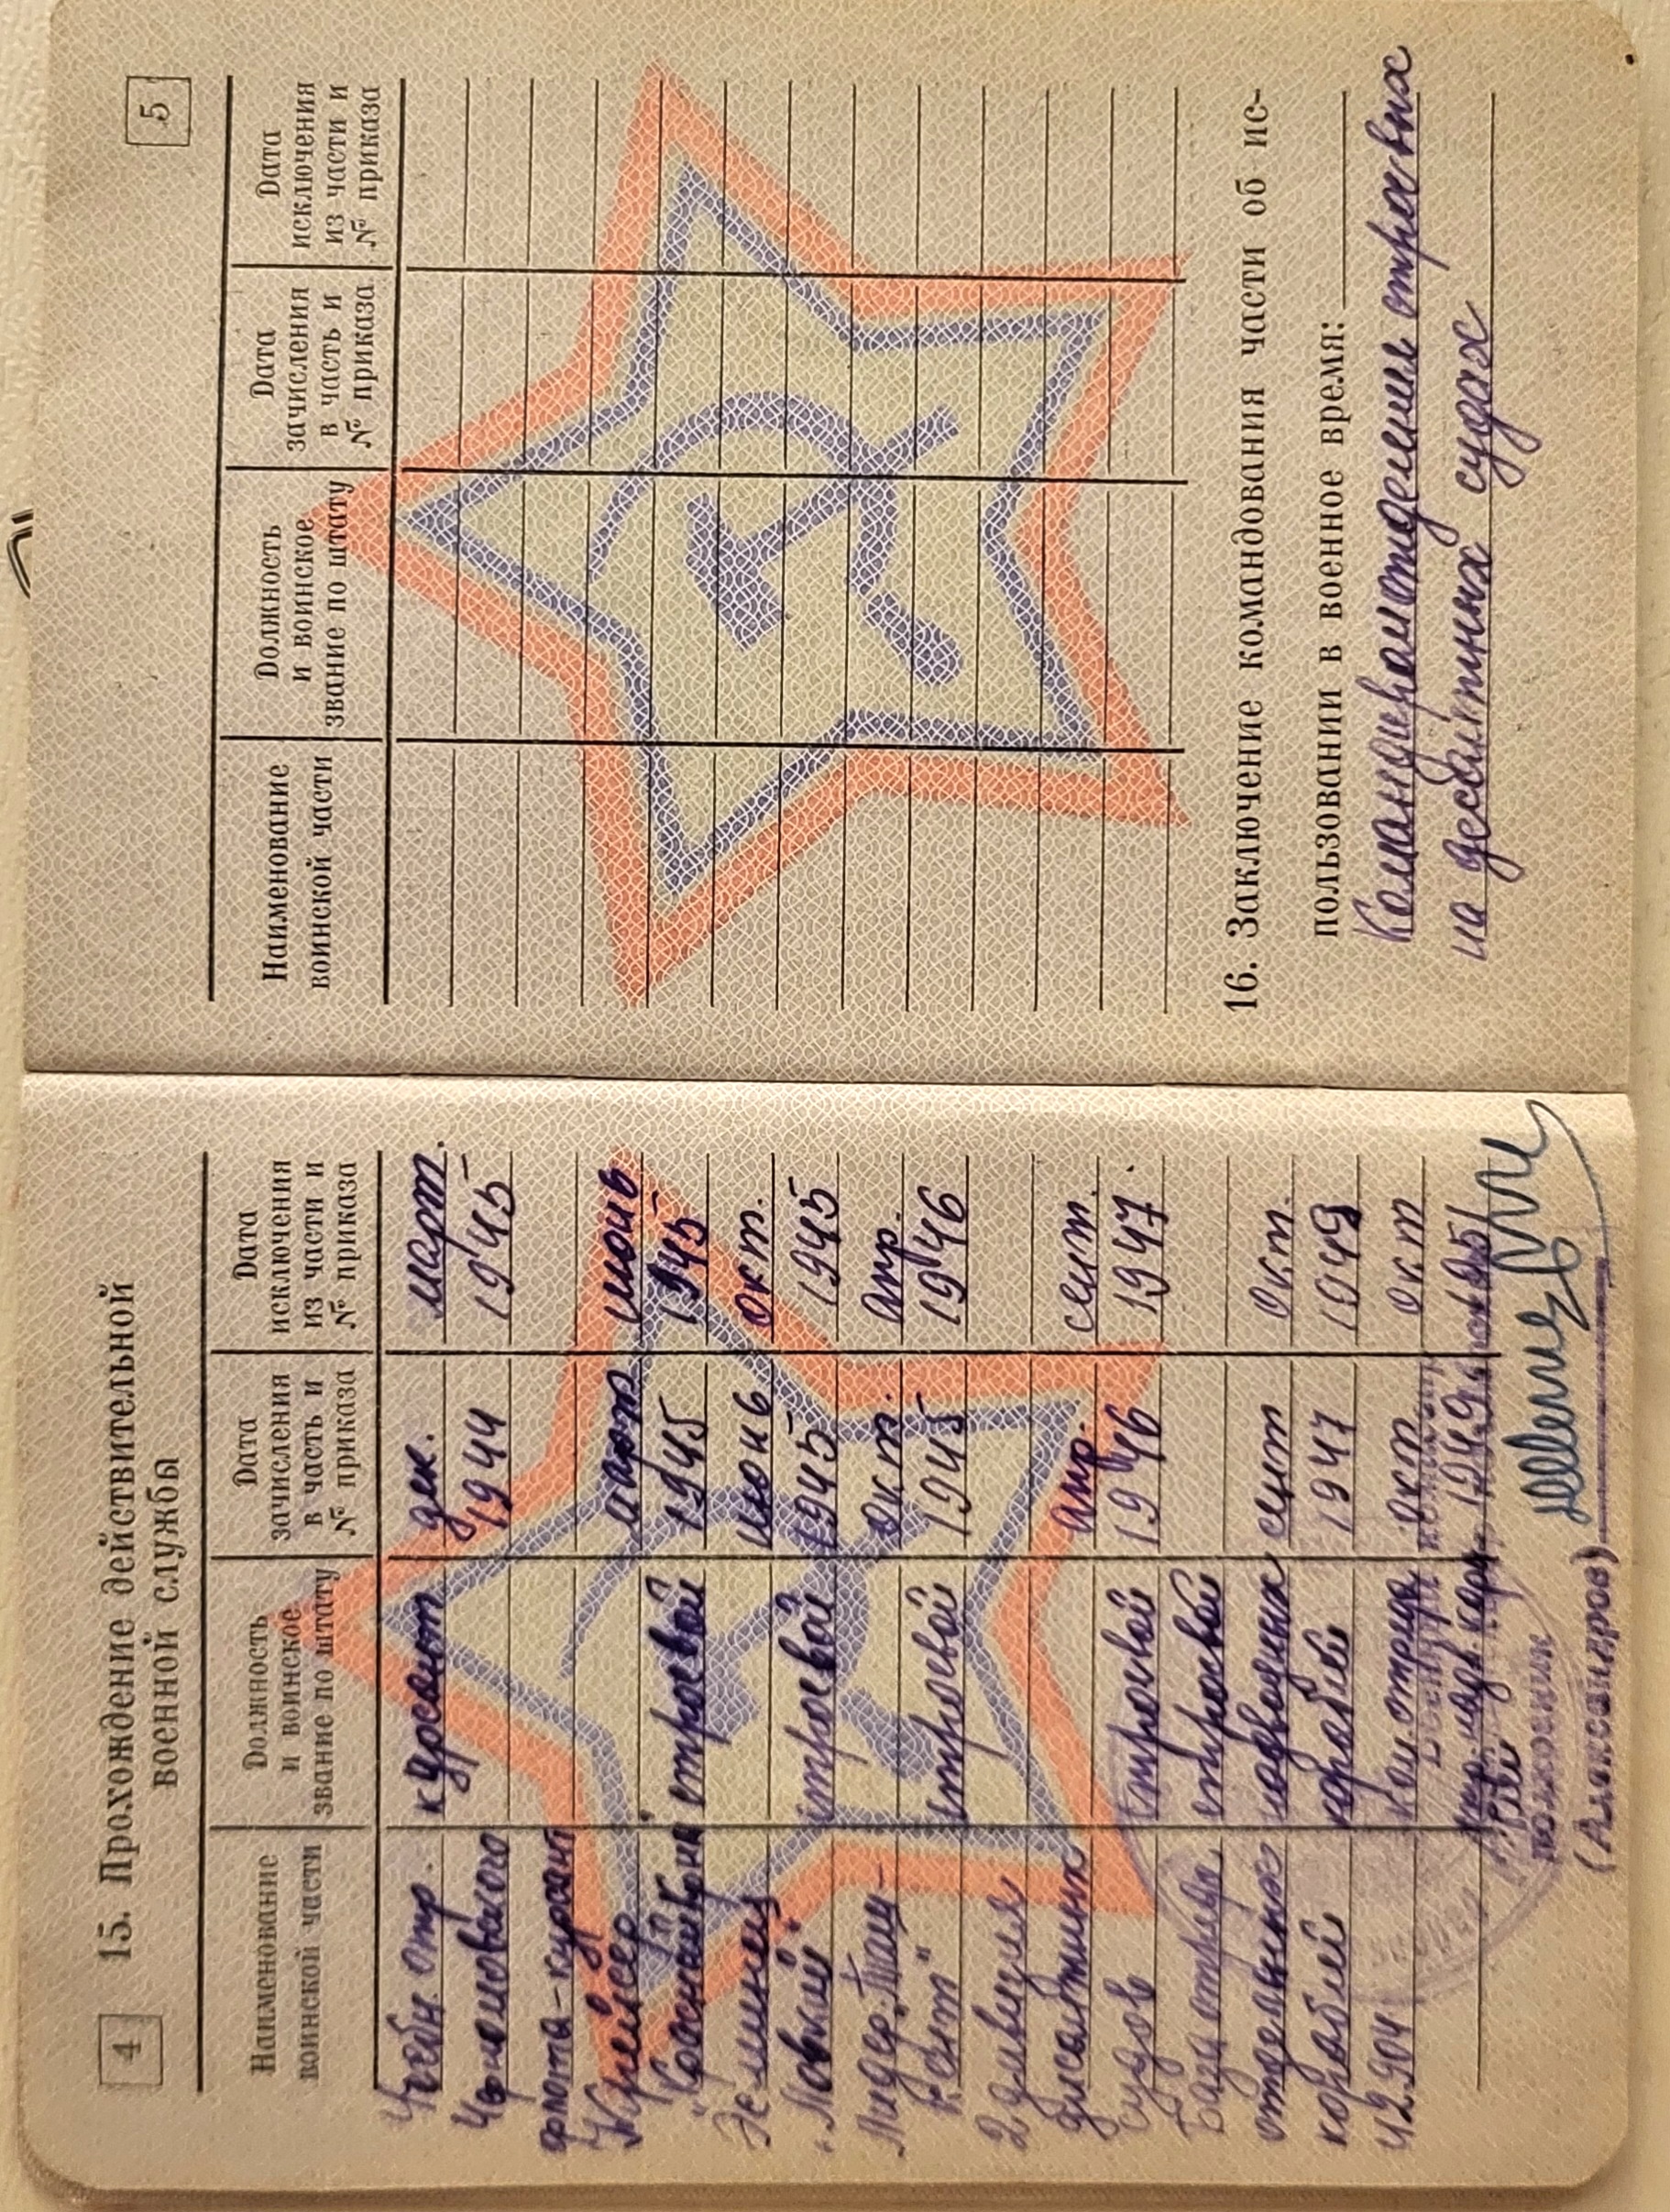 4
15. Прохождение действительной
военной службы
Наименование
воинской части
Должность
и воинское
звание по штату
Дата
зачисления
в часть и
№ приказа
Дата
исключения
из части и
№ приказа
Учебн. отр. курсант дек. март.
Черноморского 1944 1945
флота - курсант
Крейсер март июнь
"Красный Крым" строевой 1945 1945
Эсминец июнь окт.
"Ловкий" строевой 1945 1945
Лидер "Таш- окт. апр.
кент" строевой 1945 1946
2 дивизия
десантных апр. сент.
судов строевой 1946 1947.
База отряда строевой
отдельных сент окт.
кораблей корабля 1947 1949
42904 Ком отряда окт окт
1949
полковник
(Александров)
5
Наименование
воинской части
Должность
и воинское
звание по штату
Дата
зачисления
в часть и
№ приказа
Дата
исключения
из части и
№ приказа
16. Заключение командования части об ис-
пользовании в военное время:
Командиром отделения строевых
на десантных судах